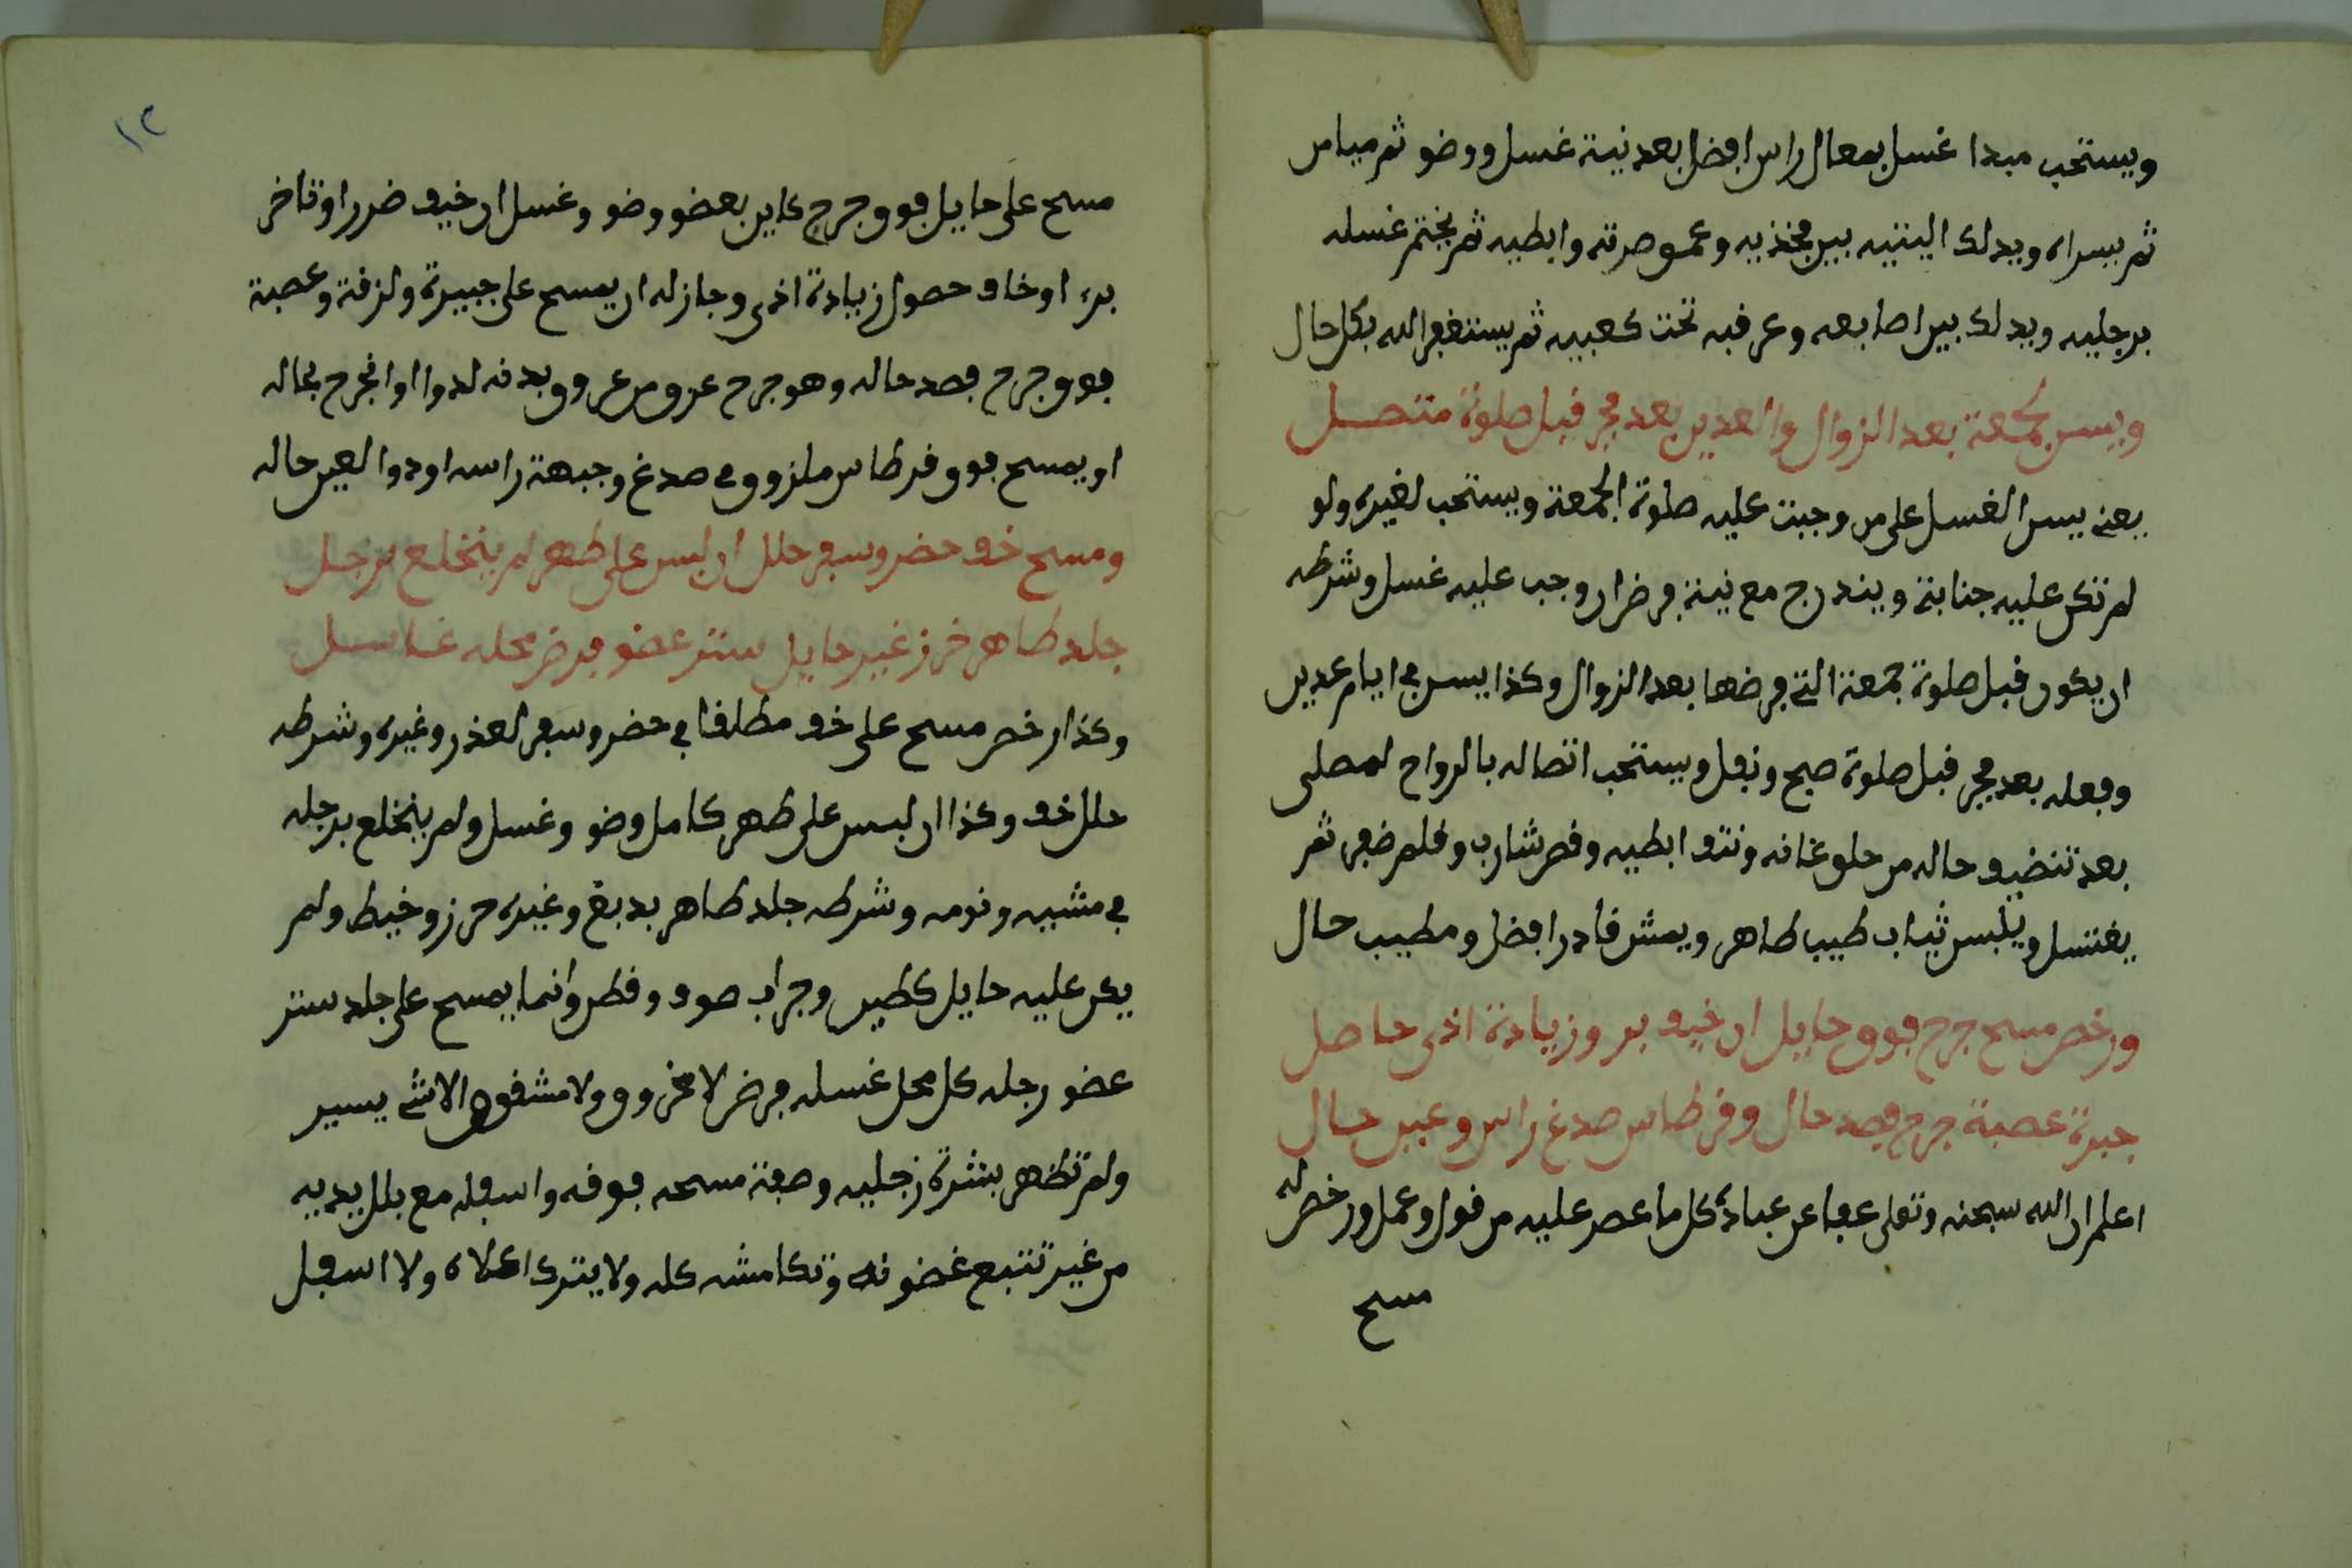 ويستحب مبدا غسل بمعال راس افضل بعد نية غسل ووضو ثم ميامن
ثم يسراه ويدلك اليتيه بين فخذيه وعمق صرته وابطيه ثم يختم غسله
برجليه ويدلك بين اصابعه وعرقبه تحت كعبيه ثم يستغفر الله بكل حال
ويسن لجمعة بعد الزوال والعدين بعد فجر قبل صلوة متصل
يعنى يسن الغسل على من وجبت عليه صلوة الجمعة ويستحب لغيره ولو
لم تكن عليه جنابة ويندرج مع نية فرض ان وجب عليه غسل وشرطه
ان يكون قبل صلوة جمعة التى فرضها بعد الزوال وكذا يسن فى ايام عدين
وفعله بعد فجر قبل صلوة صبح ونفل ويستحب اتصاله بالرواح لمصلى
بعد تنضيف حاله من حلق عانه ونتف ابطيه وقص شارب وقلم ضفر ثم
يغتسل ويلبس ثياب طيب طاهر ويمش قادر افضل ومطيب حال
ورخص مسح جرح فوق حايل ان خيف بر وزيادة اذى حاصل
جبرة عصبة جرح فصد حال وقرطاس صدغ راس وعين حال
اعلم ان الله سبحنه وتعلى عفا عن عباده كل ما عصر عليه من قول وعمل ورخص له
مسح
١٢
مسح على حايل فوق جرح كاين بعضو وضو وغسل ان خيف ضررا وتاخر
برء او خاف حصول زيادة اذى وجاز له ان يمسح على جبيرة ولزقة وعصبة
فوق جرح فصد حاله وهو جرح عرق من عروق بدنه لدوا او انجرح بحاله
او يمسح فوق قرطاس ملزوق فى صدغ وجبهة راسه او دوا لعين حاله
ومسح خف حضر وسفر حلل ان لبس على طهر لم ينخلع برجل
جلد طاهر خرز غير حايل ستر عضو فرض محله غاسل
وكذا رخص مسح على خف مطلقا فى حضر وسفر لعذر وغيره وشرطه
حلل خف وكذا ان لبس على طهر كامل وضو وغسل ولم ينخلع برجله
فى مشيه ونومه وشرطه جلد طاهر بدبغ وغيره خرز وخيط ولم
يكن عليه حايل كطين وجراب صوف وقطن وانما يمسح على جلد ستر
عضو رجله كل محل غسله فرض لا مخروق ولا مشقوق الا شى يسير
ولم تظهر بشرة رجليه وصفة مسحه فوقه واسفله مع بلل يديه
من غير تتبع غضونه وتكامشه كله ولا يترك اعلاه ولا اسفل